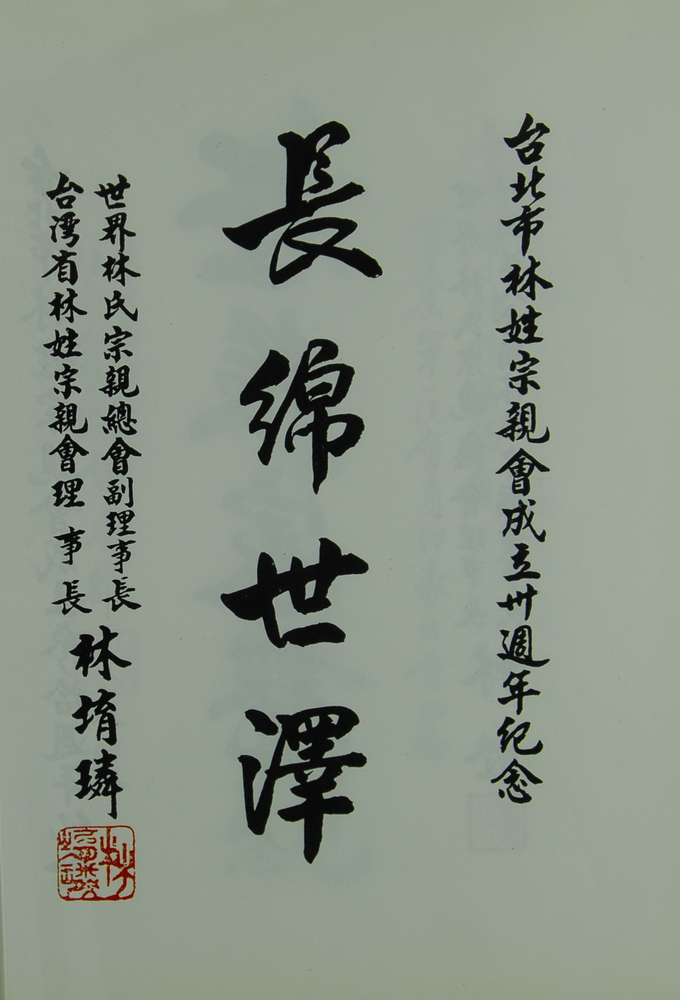 台北市林姓宗親會成立卅週年纪念
長綿世澤
世界林氏宗親總會副理事長
台湾省林姓宗親會理事長
林堉璘